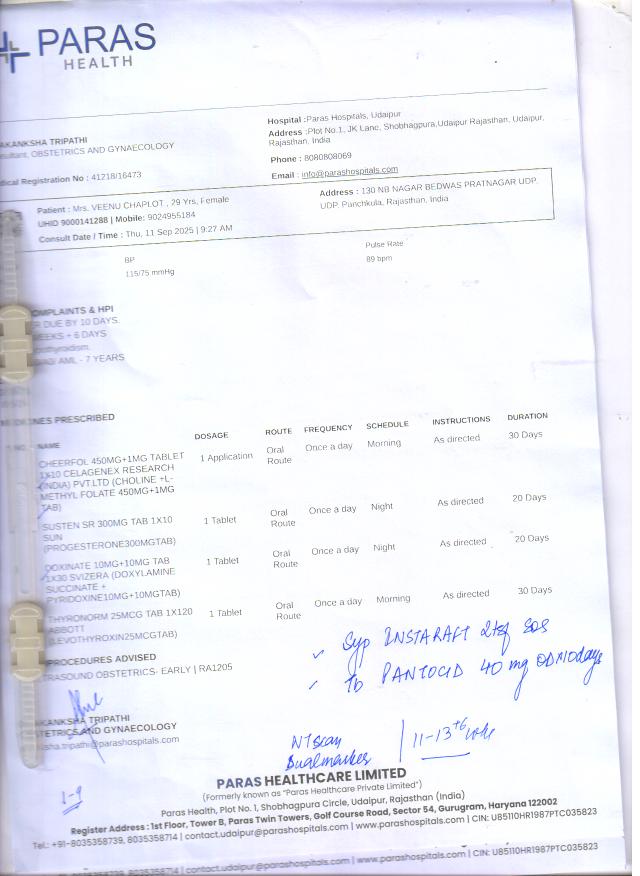 PARAS
HEALTH
AKANKSHA TRIPATHI
sultant, OBSTETRICS AND GYNAECOLOGY
dical Registration No : 41218/16473
Hospital :Paras Hospitals, Udaipur
Address :Plot No.1, JK Lane, Shobhagpura,Udaipur Rajasthan, Udaipur,
Rajasthan, India
Phone : 8080808069
Email : info@parashospitals.com
Patient : Mrs. VEENU CHAPLOT , 29 Yrs, Female
UHID 9000141288 | Mobile: 9024955184
Consult Date / Time : Thu, 11 Sep 2025 | 9:27 AM
Address : 130 NB NAGAR BEDWAS PRATNAGAR UDP,
UDP, Punchkula, Rajasthan, India
BP Pulse Rate
115/75 mmHg 89 bpm
OMPLAINTS & HPI
R DUE BY 10 DAYS.
WEEKS + 6 DAYS
pothyroidism.
AML - 7 YEARS
PRESCRIBED
NAME DOSAGE ROUTE FREQUENCY SCHEDULE INSTRUCTIONS DURATION
CHEERFOL 450MG+1MG TABLET 1 Application Oral Once a day Morning As directed 30 Days
1X10 CELAGENEX RESEARCH Route
(INDIA) PVT.LTD (CHOLINE +L-
METHYL FOLATE 450MG+1MG
TAB)
SUSTEN SR 300MG TAB 1X10 1 Tablet Oral Once a day Night As directed 20 Days
SUN Route
(PROGESTERONE300MGTAB)
DOXINATE 10MG+10MG TAB 1 Tablet Oral Once a day Night As directed 20 Days
1X30 SVIZERA (DOXYLAMINE Route
SUCCINATE +
PYRIDOXINE10MG+10MGTAB)
THYRONORM 25MCG TAB 1X120 1 Tablet Oral Once a day Morning As directed 30 Days
ABBOTT Route
(LEVOTHYROXIN25MCGTAB)
PROCEDURES ADVISED
TRASOUND OBSTETRICS- EARLY | RA1205
Syp INSTARAFT 2tsf SOS
Tb PANTOCID 40 mg OD
KANKSHA TRIPATHI
STETRICS AND GYNAECOLOGY
sha.tripathi@parashospitals.com
NT scan
Dualmarker
11-13+6 wk
1-9
PARAS HEALTHCARE LIMITED
(Formerly known as "Paras Healthcare Private Limited")
Paras Health, Plot No. 1, Shobhagpura Circle, Udaipur, Rajasthan (India)
Register Address : 1st Floor, Tower B, Paras Twin Towers, Golf Course Road, Sector 54, Gurugram, Haryana 122002
Tel.: +91-8035358739, 8035358714 | contact.udaipur@parashospitals.com | www.parashospitals.com | CIN: U85110HR1987PTC035823
8035358714 | contact.udaipur@parashospitals.com | www.parashospitals.com | CIN: U85110HR1987PTC035823